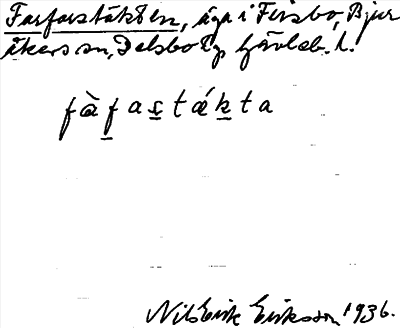 Farfarstäkten, äga i Firsbo, Bjur
åkers sn, Delsbo Tg Gävleb. l.
fàfastákta
Nils Erik Eriksson 1936.